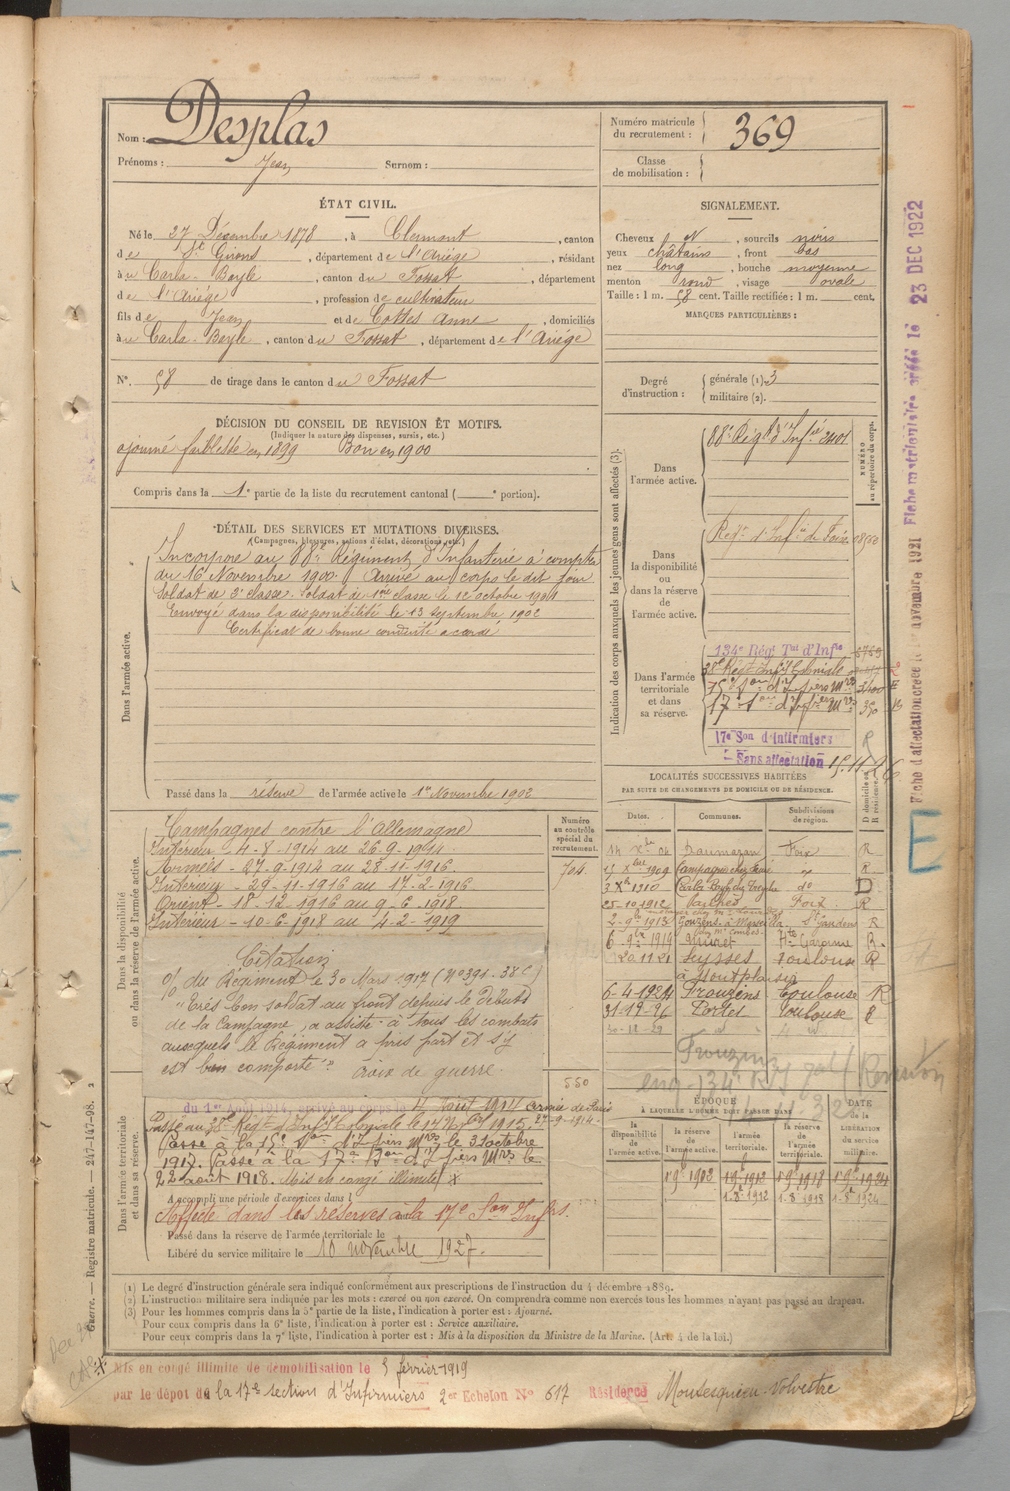 Nom : Desplas
Prénoms : Jean Surnom :
Numéro matricule du recrutement : 369
Classe de mobilisation :
ÉTAT CIVIL.
Né le 27 Décembre 1878, à Clermont, canton
de St Girons, département de l'Ariège, résidant
à u Carla-Bayle, canton du Fossat, département
de l'Ariège, profession de cultivateur
fils de Jean et de Cottes Anne, domiciliés
à u Carla-Bayle, canton du Fossat, département de l'Ariège
N°. 58 de tirage dans le canton du Fossat
SIGNALEMENT.
Cheveux N, sourcils noirs
yeux châtains, front bas
nez long, bouche moyenne
menton rond, visage ovale
Taille : 1 m. 58 cent. Taille rectifiée : 1 m. cent.
MARQUES PARTICULIÈRES :
Degré d'instruction : générale (1). 3
militaire (2).
DÉCISION DU CONSEIL DE REVISION ET MOTIFS.
(Indiquer la nature des dispenses, sursis, etc.)
ajourné faiblesse en 1899 Bon en 1900
Compris dans la 1e partie de la liste du recrutement cantonal ( e portion).
DÉTAIL DES SERVICES ET MUTATIONS DIVERSES.
(Campagnes, blessures, actions d'éclat, décorations, etc.)
Dans l'armée active.
Incorporé au 88e Régiment d'Infanterie à compter
du 16 Novembre 1900. Arrivé au corps le dit jour
Soldat de 2e classe. Soldat de 1re classe le 12 octobre 1901
Envoyé dans la disponibilité le 13 Septembre 1902
Certificat de bonne conduite accordé
Passé dans la réserve de l'armée active le 1er Novembre 1902
Indication des corps auxquels les jeunes gens sont affectés (3).
NUMÉRO au répertoire du corps.
Dans l'armée active.
88e Régt d'Infie 2401
Dans la disponibilité ou dans la réserve de l'armée active.
Regt d'Infie de Foix
Dans l'armée territoriale et dans sa réserve.
134e Rég. Tal d'Infie
38e Regt Infie Coloniale
15e Son d'Infiers Mres
17e Son d'Infiers Mres
17e Son d'Infirmiers
Sans affectation 15.11.26
Dans la disponibilité ou dans la réserve de l'armée active.
Campagnes contre l'Allemagne
Intérieur - 4-8-1914 au 26-9-1914
Armées - 27-9-1914 au 28-11-1916
Intérieur - 29-11-1916 au 17-2-1916
Orient - 18-12-1916 au 9-6-1918
Intérieur - 10-6-1918 au 4-2-1919
Citation
du Régiment le 30 Mars 1917 (No 391-38C)
"Très bon soldat au front depuis le Début
de la Campagne, a assisté à tous les combats
auxquels le Régiment a pris part et s'y
est bien comporté" croix de guerre
Numéro au contrôle spécial du recrutement.
704
550
LOCALITÉS SUCCESSIVES HABITÉES
PAR SUITE DE CHANGEMENTS DE DOMICILE OU DE RÉSIDENCE.
Dates. Communes. Subdivisions de région. D domicile ou R résidence.
14 Xbre 04 Daumazan Foix R
Xbre 1909 Campagne R
3 Xbre 1910 Carla-Bayle do D
25-10-1912 Foix R
2-9-1913 St Gaudens R
6-9bre 1919 Muret Hte Garonne R
20.11.21 Seysses Toulouse R
à Montplaisir
6-4-1924 Frouzins Toulouse R
31-12-26 Portet Toulouse R
Frouzins
Dans l'armée territoriale et dans sa réserve.
du 1er Août 1914, arrivé au corps le 4 Août 1914
Passé au 38e Regt d'Infie Coloniale le
Passé à la 15e Son d'Infiers Mres le 31 octobre
1917. Passé à la 17e Son d'Infiers Mres le
22 août 1918. Mis en congé illimité
A accompli une période d'exercices dans l
Affecté dans les réserves à la 17e Son Infrs.
Passé dans la réserve de l'armée territoriale le
Libéré du service militaire le 10 novembre 1927.
ÉPOQUE À LAQUELLE L'HOMME DOIT PASSER DANS
la disponibilité de l'armée active. la réserve de l'armée active. l'armée territoriale. la réserve de l'armée territoriale. DATE de la LIBÉRATION du service militaire.
1 9bre 1903 1 9bre 1913 1 9bre 1918 1 9bre 1924
(1) Le degré d'instruction générale sera indiqué conformément aux prescriptions de l'instruction du 4 décembre 1889.
(2) L'instruction militaire sera indiquée par les mots : exercé ou non exercé. On comprendra comme non exercés tous les hommes n'ayant pas passé au drapeau.
(3) Pour les hommes compris dans la 5e partie de la liste, l'indication à porter est : Ajourné.
Pour ceux compris dans la 6e liste, l'indication à porter est : Service auxiliaire.
Pour ceux compris dans la 7e liste, l'indication à porter est : Mis à la disposition du Ministre de la Marine. (Art. 4 de la loi.)
Mis en congé illimité de démobilisation le 5 février 1919
par le dépôt de la 17e section d'Infirmiers 2er Echelon No 617 Résidence Montesquieu-Volvestre
Guerre. — Registre matricule. — 247-147-98. 2
Fiche d'affectation créée le novembre 1921 Fiche matrimoniale créée le 23 DEC 1922
E